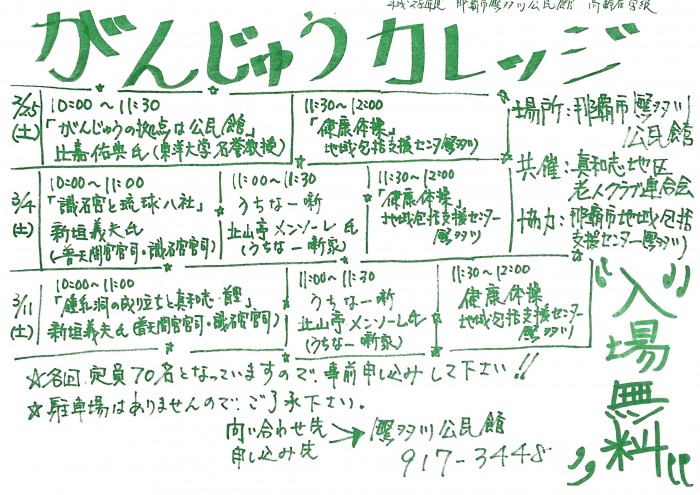 那覇市繁多川公民館 高齢者学級
がんじゅうカレッジ
2/25(土)
10:00～11:30
「がんじゅうの拠点は公民館」
比嘉佑典氏(東洋大学名誉教授)
11:30～12:00
「健康体操」
地域包括支援センター繁多川
3/4(土)
10:00～11:00
「識名宮と琉球八社」
新垣義夫氏
(普天間宮宮司・識名宮宮司)
11:00～11:30
うちなー噺
北山亭メンソーレ氏
(うちなー噺家)
11:30～12:00
「健康体操」
地域包括支援センター
繁多川
3/11(土)
10:00～11:00
「鍾乳洞の成り立ちと真和志・首里」
新垣義夫氏(普天間宮宮司・識名宮宮司)
11:00～11:30
うちなー噺
北山亭メンソーレ氏
(うちなー噺家)
11:30～12:00
健康体操
地域包括支援センター
繁多川
場所:那覇市繁多川
公民館
共催:真和志地区
老人クラブ連合会
協力:那覇市地域包括
支援センター繁多川
"入場無料"
☆各回定員70名となっていますので、事前申し込みして下さい!!
☆駐車場はありませんので、ご了承下さい。
問い合わせ先
申し込み先
→繁多川公民館
917-3448